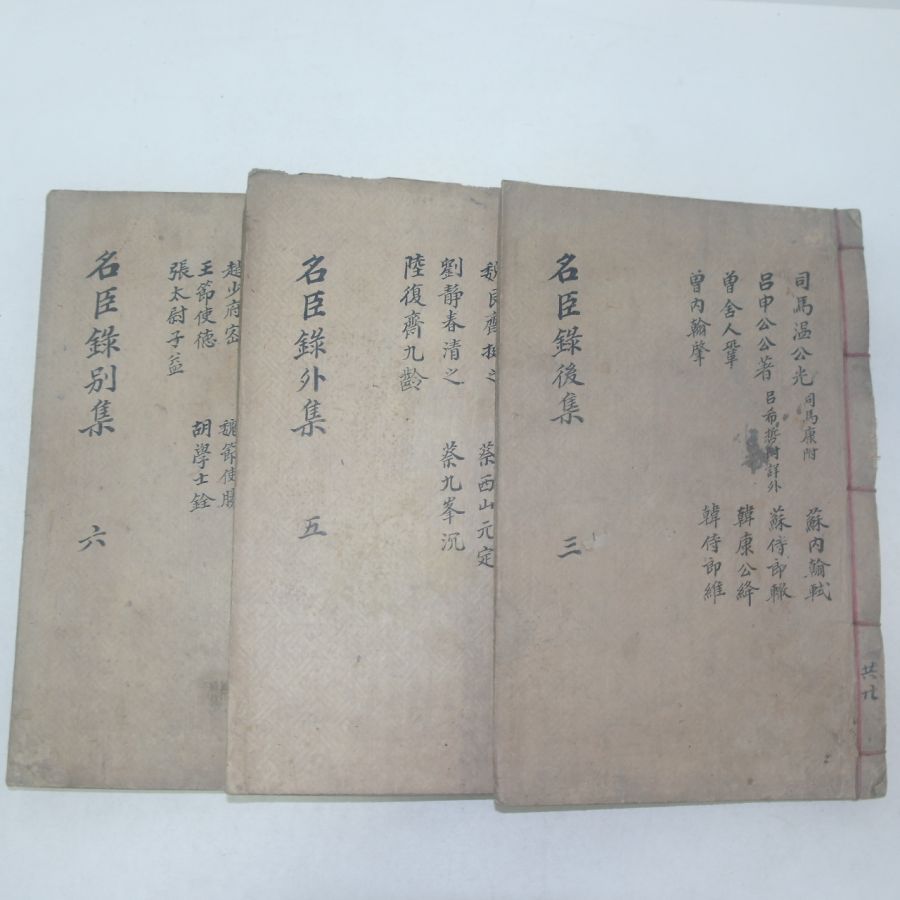 共九
司馬温公光 司馬康附
蘇內翰軾
呂申公公著 呂希哲附詳外
蘇侍郎轍
曾舍人鞏
韓康公絳
曾內翰肇
韓侍郎維
名臣錄後集 三
魏艮齋挺之
蔡西山元定
劉靜春清之
蔡九峯沉
陸復齋九齡
名臣錄外集 五
趙少府密
魏節使勝
王節使德
胡學士銓
張太尉子盖
名臣錄别集 六